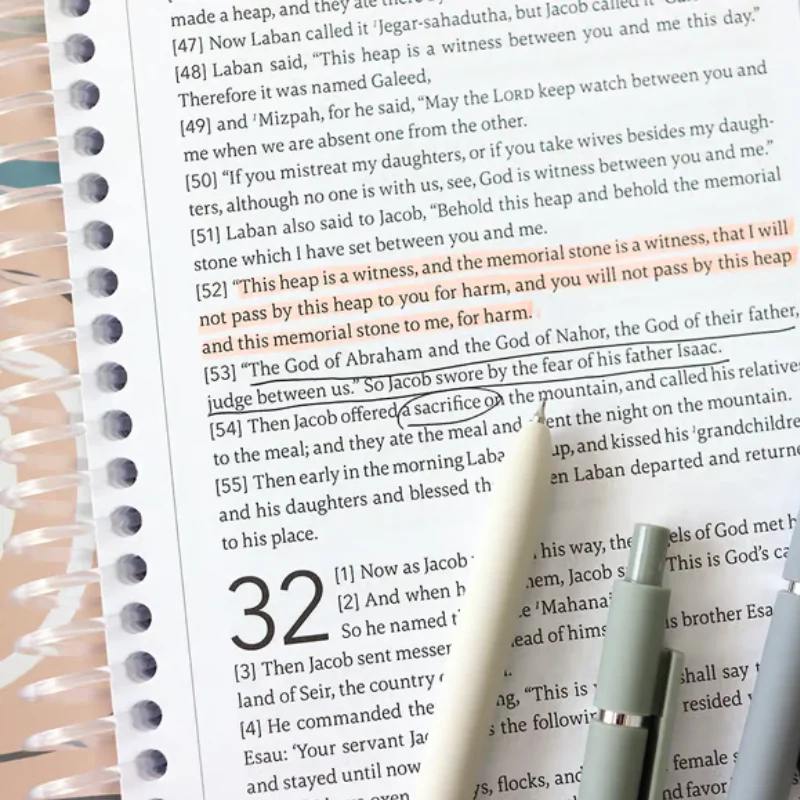 made a heap, and they ate there by
[47] Now Laban called it ¹Jegar-sahadutha, but Jacob called it
[48] Laban said, “This heap is a witness between you and me this day.”
Therefore it was named Galeed,
[49] and ¹Mizpah, for he said, “May the LORD keep watch between you and
me when we are absent one from the other.
[50] “If you mistreat my daughters, or if you take wives besides my daugh-
ters, although no one is with us, see, God is witness between you and me.”
[51] Laban also said to Jacob, “Behold this heap and behold the memorial
stone which I have set between you and me.
[52] “This heap is a witness, and the memorial stone is a witness, that I will
not pass by this heap to you for harm, and you will not pass by this heap
and this memorial stone to me, for harm.
[53] “The God of Abraham and the God of Nahor, the God of their father,
judge between us.” So Jacob swore by the fear of his father Isaac.
[54] Then Jacob offered a sacrifice on the mountain, and called his relative
to the meal; and they ate the meal and ent the night on the mountain.
[55] Then early in the morning Laba up, and kissed his ¹grandchildre
and his daughters and blessed th en Laban departed and returne
to his place.
32
[1] Now as Jacob his way, the els of God met h
[2] And when h hem, Jacob s This is God’s ca
So he named t e ¹Mahanai
[3] Then Jacob sent messen ead of hims is brother Esa
land of Seir, the country
[4] He commanded the ng, “This is shall say t
Esau: ‘Your servant Jac s the followin resided
and stayed until now
ys, flocks, and female s
nd favor